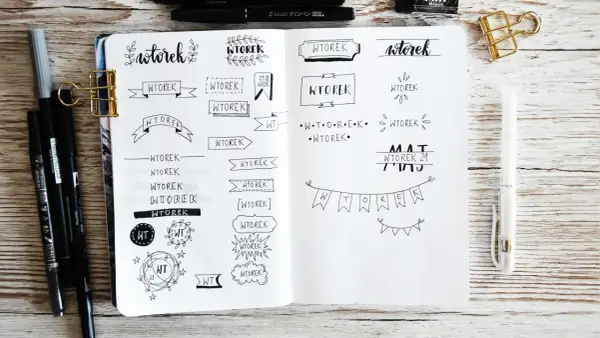 wtorek
WTOREK
WTOREK
WTOREK
WTOREK
WTOREK
WTOREK
WT
WTOREK
WTOREK
WTOREK
WTOREK
WTOREK
WTOREK
WTOREK
WTOREK
[WTOREK]
WTOREK
WT
WT
WTOREK
WT
WTOREK
WT
WTOREK
wtorek
WTOREK
WTOREK
W•T•O•R•E•K
WTOREK
WTOREK
MAJ
WTOREK 21
WTOREK